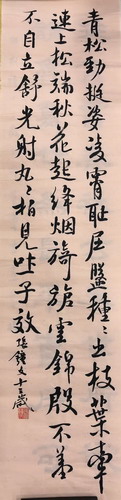 青松勁挺姿凌霄恥屈盤種〻出枝葉牽
連上松端秋花起絳烟旖旎雲錦殷不羞
不自立舒光射丸〻柏見吐子效 鍾文十三歲